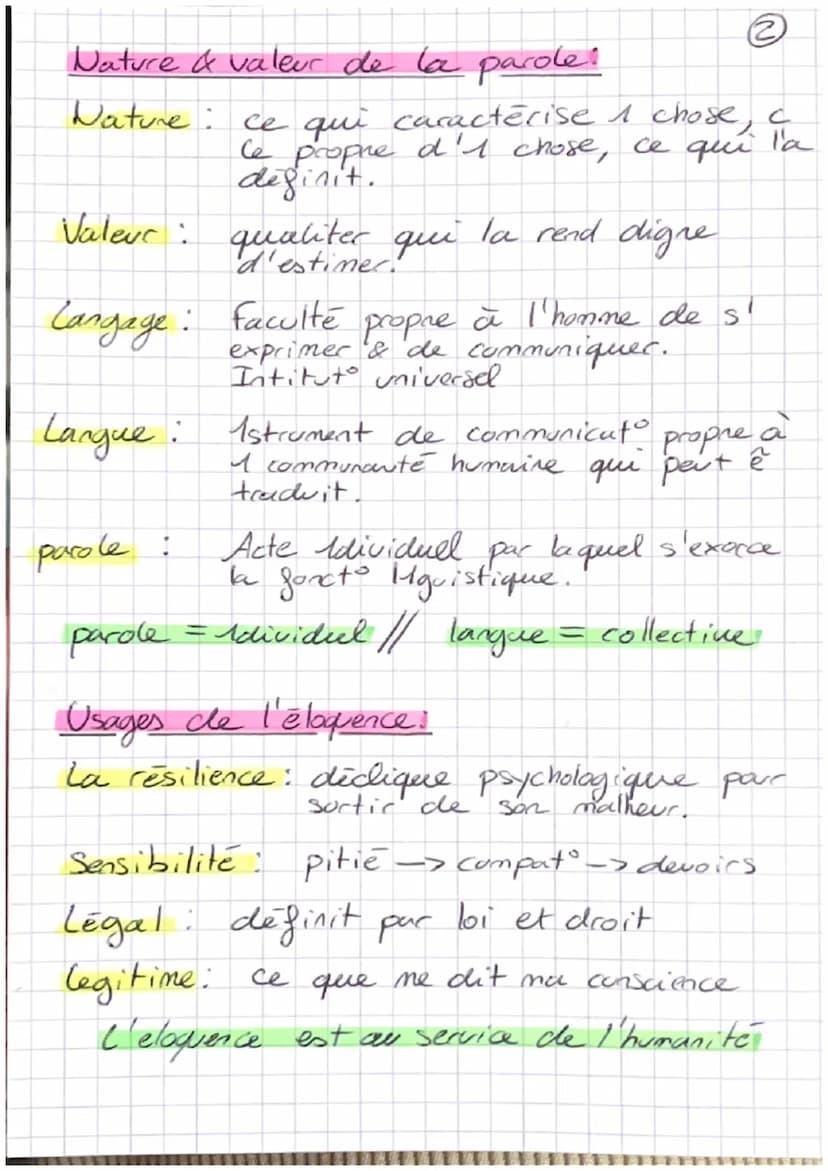 2
Nature & valeur de la parole:
Nature : ce qui caractérise 1 chose, c
le propre d'1 chose, ce qui l'a
définit.
Valeur : qualiter qui la rend digne
d'estimer.
Langage : faculté propre à l'homme de s'
exprimer & de communiquer.
Intitut° universel
Langue : 1strument de communicat° propre à
1 communauté humaine qui peut ê
traduit.
parole : Acte 1dividuel par laquel s'exerce
la fonct° l1guistique.
parole = 1dividuel // langue = collective
Usages de l'éloquence:
La résilience : déclique psychologique pour
sortir de son malheur.
Sensibilité : pitié -> compat° -> devoirs
Légal : définit par loi et droit
Legitime : ce que me dit ma conscience
L'eloquence est au service de l'humanité